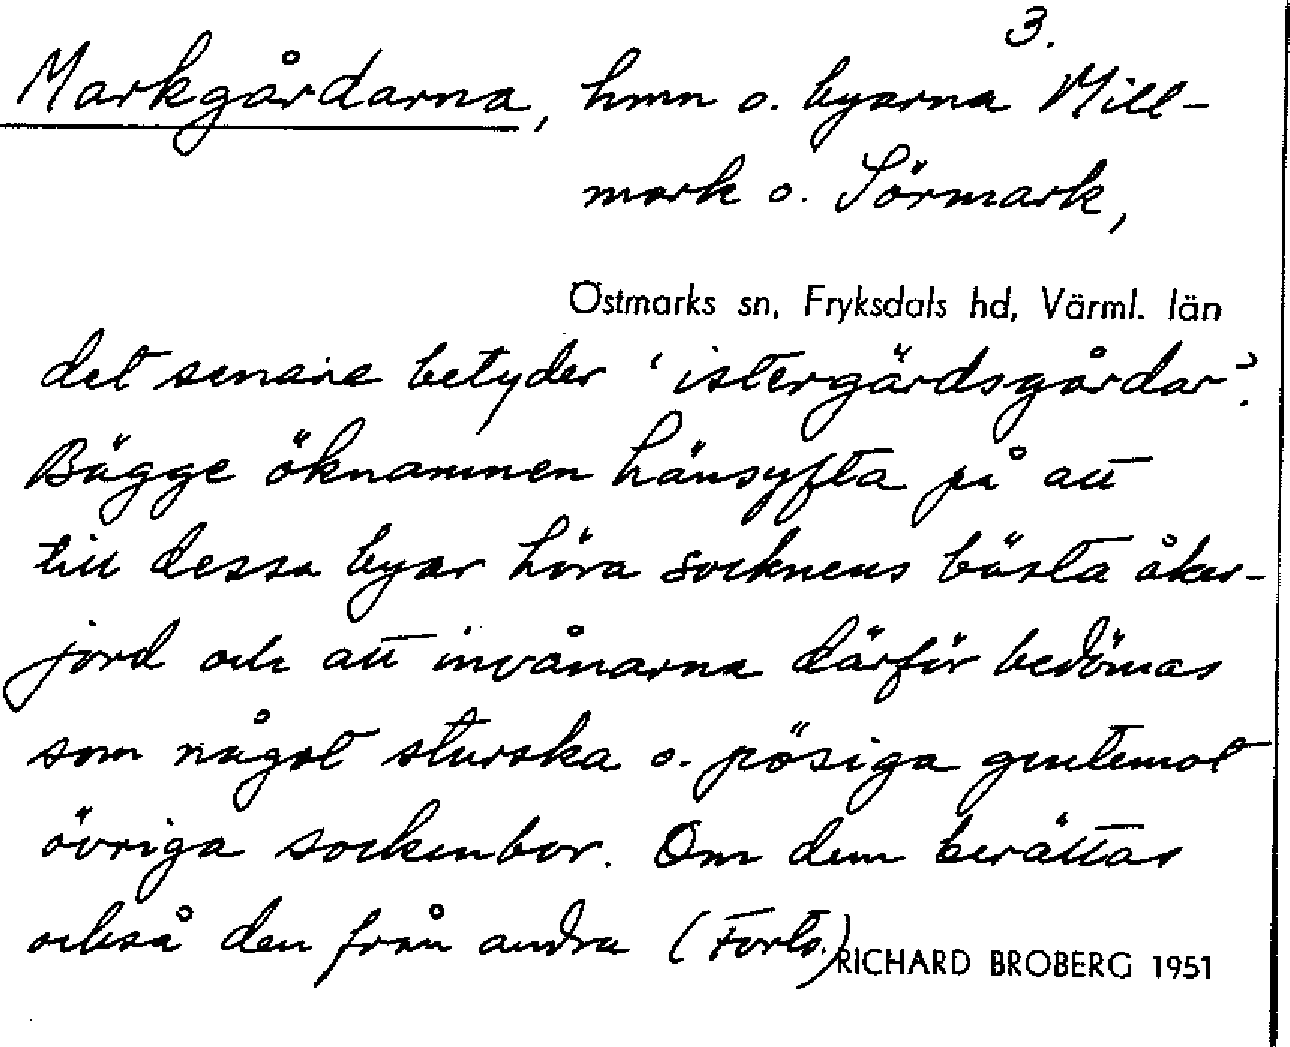 3.
Markgårdarna, hmn o. byarna Mill-
mark o. Sörmark,
Östmarks sn, Fryksdals hd, Värml. län
det senare betyder 'istergärdsgårdar'.
Bägge öknamnen hänsyfta på att
till dessa byar höra socknens bästa åker-
jord och att invånarna därför bedömas
som något sturska o. pösiga gentemot
övriga sockenbor. Om dem berättas
också den från andra (Forts.)
RICHARD BROBERG 1951